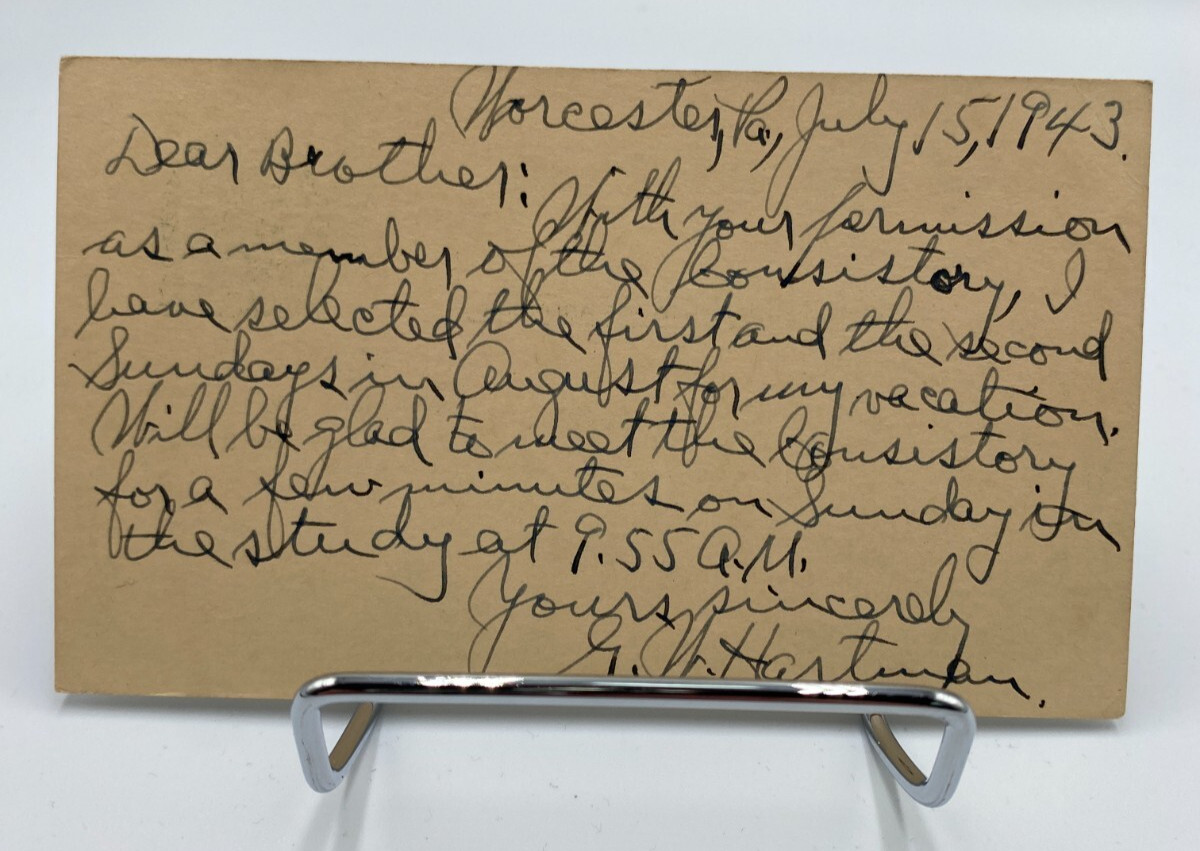 Worcester, Pa., July 15, 1943.
Dear Brother:
With your permission
as a member of the Consistory, I
have selected the first and the second
Sundays in August for my vacation.
Will be glad to meet the Consistory
for a few minutes on Sunday in
the study at 9.55 A.M.
Yours sincerely
G. W. Hartman.